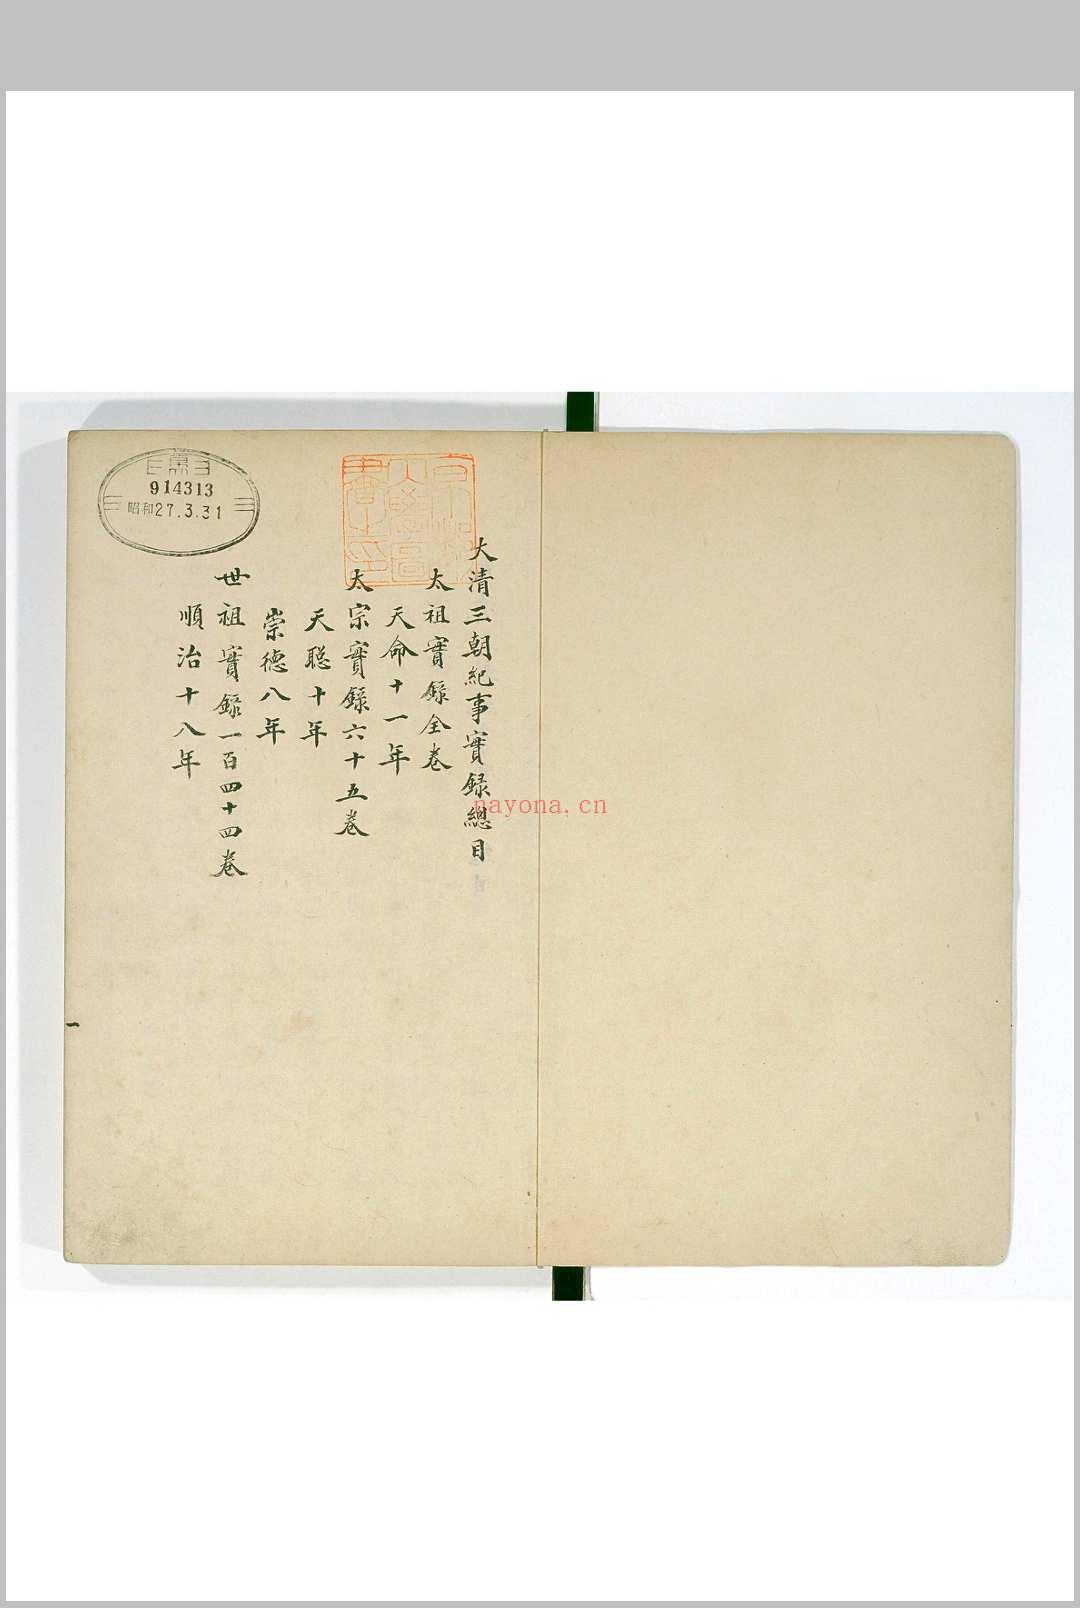 大清三朝紀事實錄總目
太祖實錄全卷
天命十一年
太宗實錄六十五卷
天聡十年
崇德八年
世祖實錄一百四十四卷
順治十八年
一
914313
昭和27.3.31
nayona.cn